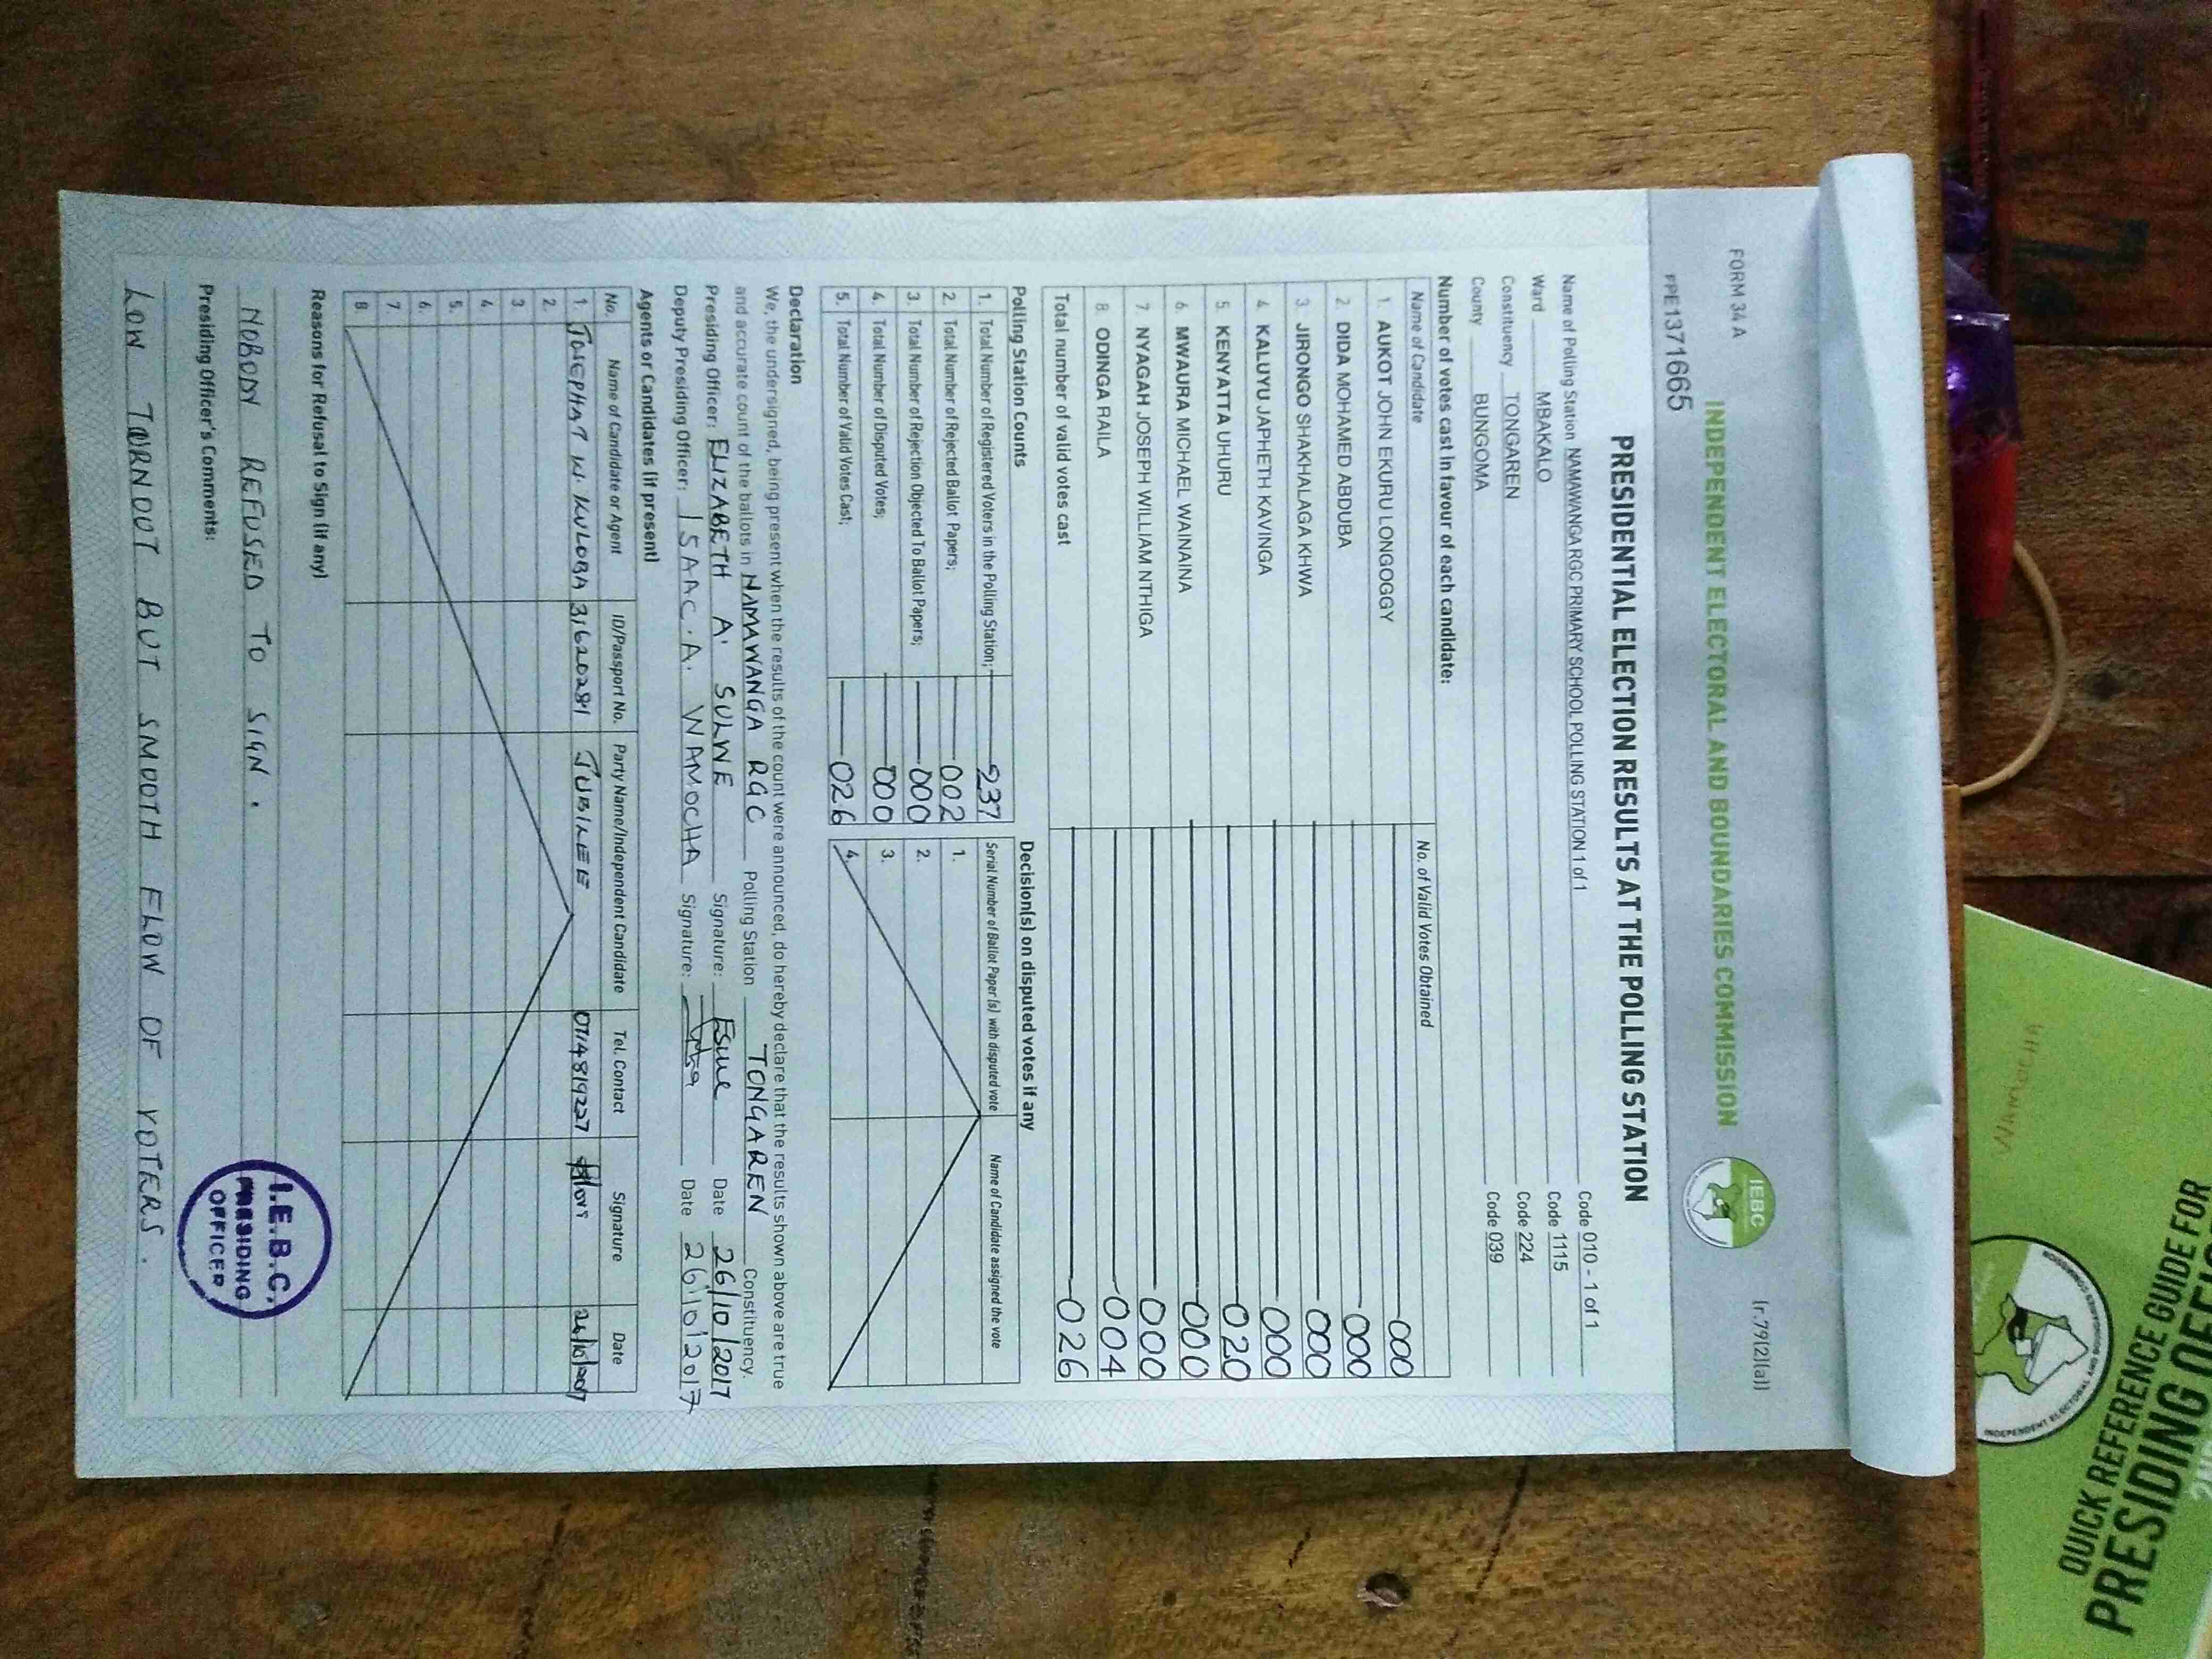 FORM 34 A
(r.79(2)(a))
INDEPENDENT ELECTORAL AND BOUNDARIES COMMISSION
IEBC
FPE1371665
PRESIDENTIAL ELECTION RESULTS AT THE POLLING STATION
Name of Polling Station NAMAWANGA RGC PRIMARY SCHOOL POLLING STATION 1 of 1 Code 010 - 1 of 1
Ward MBAKALO Code 1115
Constituency TONGAREN Code 224
County BUNGOMA Code 039
Number of votes cast in favour of each candidate:
Name of Candidate No. of Valid Votes Obtained
1. AUKOT JOHN EKURU LONGOGGY 000
2. DIDA MOHAMED ABDUBA 000
3. JIRONGO SHAKHALAGA KHWA 000
4. KALUYU JAPHETH KAVINGA 000
5. KENYATTA UHURU 020
6. MWAURA MICHAEL WAINAINA 000
7. NYAGAH JOSEPH WILLIAM NTHIGA 000
8. ODINGA RAILA 004
Total number of valid votes cast 026
Polling Station Counts
1. Total Number of Registered Voters in the Polling Station; 237
2. Total Number of Rejected Ballot Papers; 002
3. Total Number of Rejection Objected To Ballot Papers; 000
4. Total Number of Disputed Votes; 000
5. Total Number of Valid Votes Cast; 026
Decision(s) on disputed votes if any
Serial Number of Ballot Paper(s) with disputed vote Name of Candidate assigned the vote
1.
2.
3.
4.
Declaration
We, the undersigned, being present when the results of the count were announced, do hereby declare that the results shown above are true
and accurate count of the ballots in NAMAWANGA RGC Polling Station TONGAREN Constituency.
Presiding Officer: ELIZABETH A. SULWE Signature: Date 26/10/2017
Deputy Presiding Officer: ISAAC.A. WAMOCHA Signature: Date 26/10/2017
Agents or Candidates (if present)
No. Name of Candidate or Agent ID/Passport No. Party Name/Independent Candidate Tel. Contact Signature Date
1. JOSEPHAT W. KULOBA 31620281 JUBILEE 0714819227 26/10/2017
2.
3
4
5.
6.
7
8
Reasons for Refusal to Sign (if any)
NOBODY REFUSED TO SIGN.
Presiding Officer's Comments:
LOW TURNOUT BUT SMOOTH FLOW OF VOTERS.
I.E.B.C.
PRESIDING
OFFICER
QUICK REFERENCE GUIDE FOR